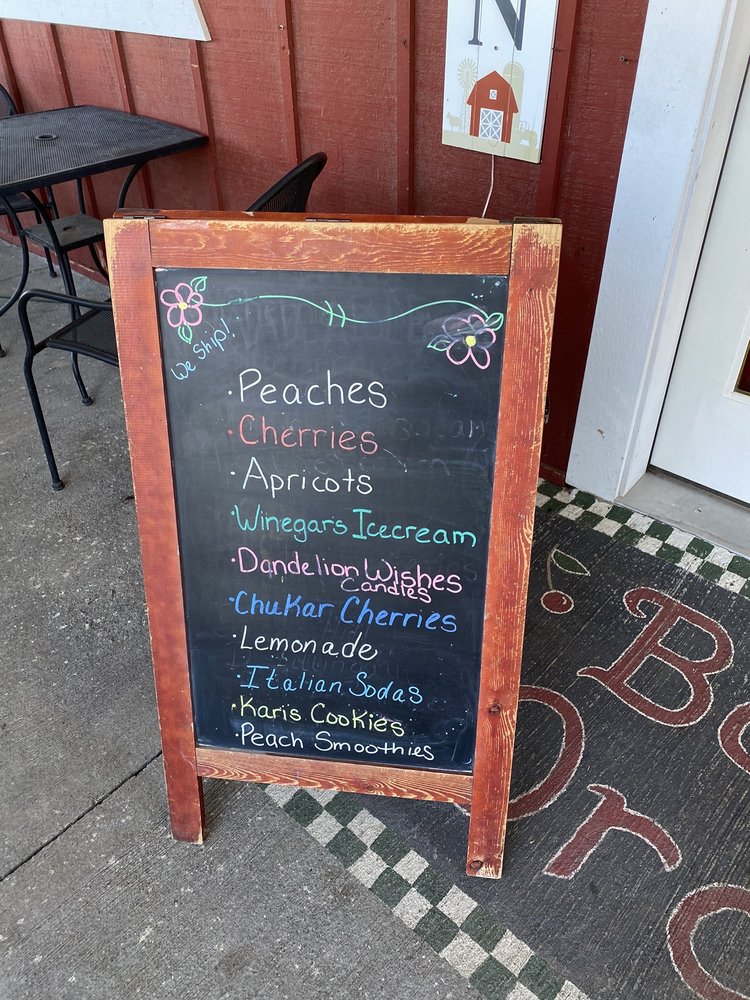 N
We Ship!
· Peaches
· Cherries
· Apricots
· Winegars Icecream
· Dandelion Wishes
Candles
· Chukar Cherries
· Lemonade
· Italian Sodas
· Karis Cookies
· Peach Smoothies